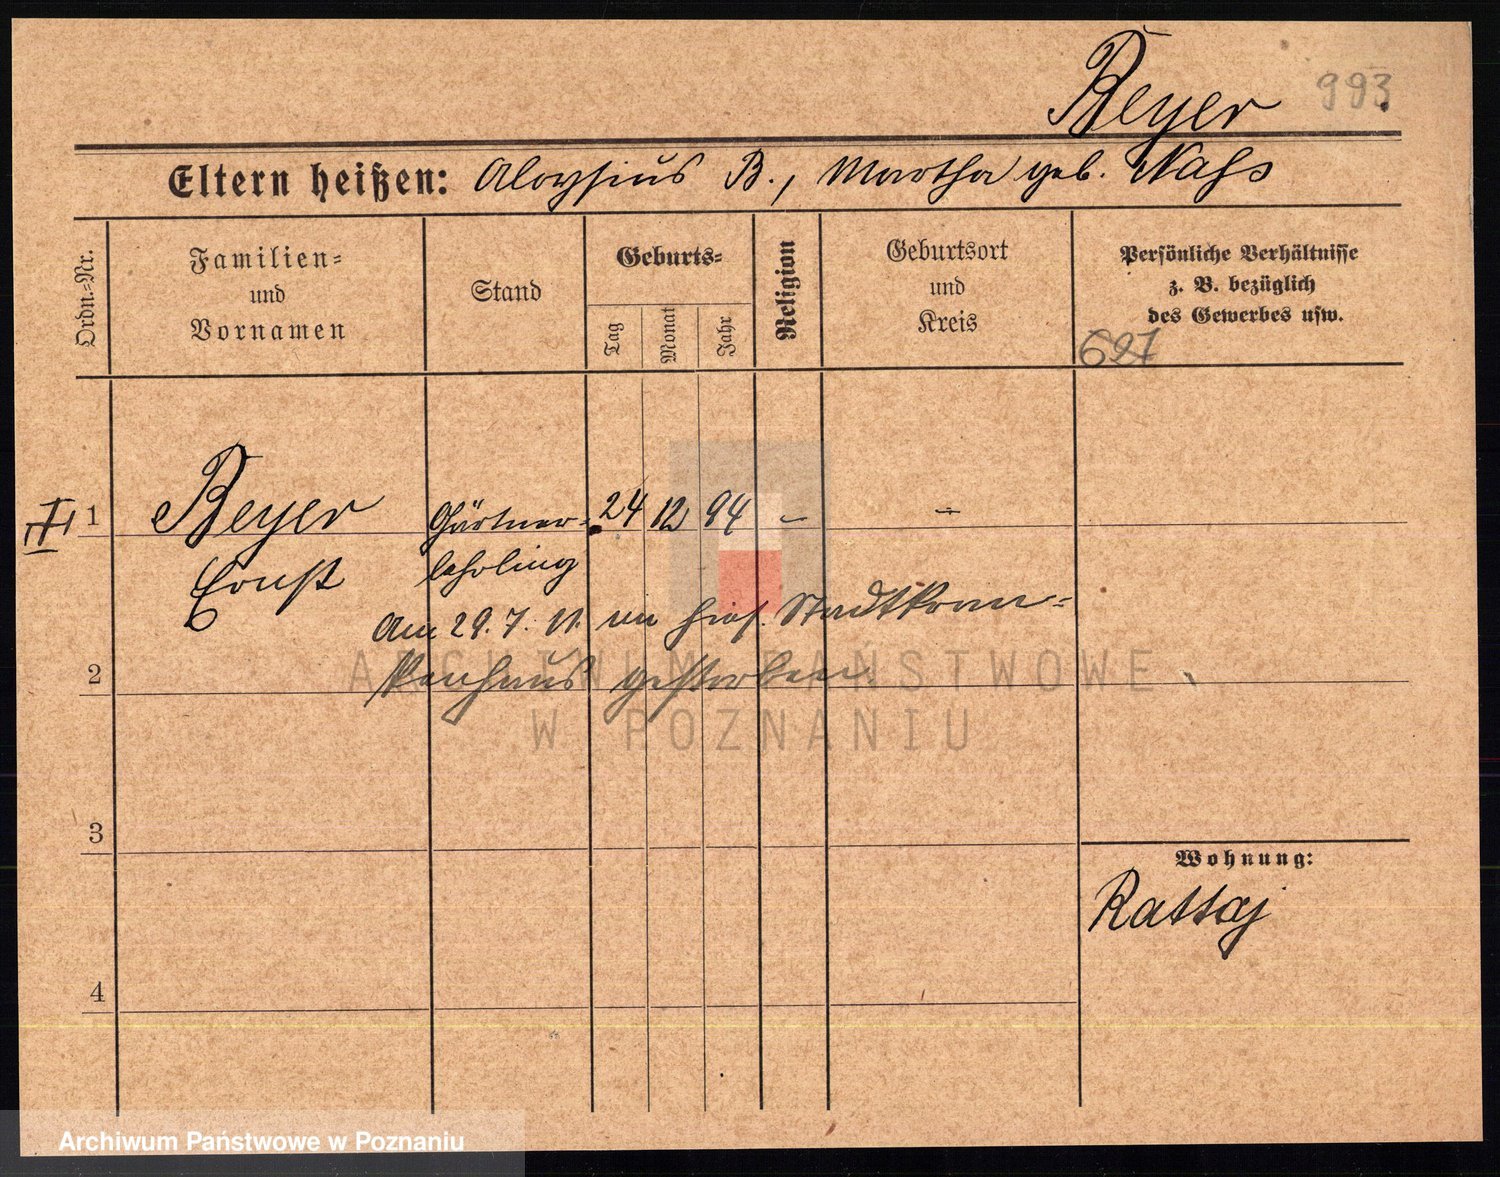 Beyer 993
Eltern heißen: Aloysius B., Martha geb. Nass
Ordn.-Nr.
Familien-
und
Vornamen
Stand
Geburts-
Tag
Monat
Jahr
Religion
Geburtsort
und
Kreis
Persönliche Verhältnisse
z. B. bezüglich
des Gewerbes usw.
627
1 Beyer Gärtner- 24 12 94 - -
Ernst lehrling
Am 29.7.11. im hies. Stadtkran-
2 kenhaus gestorben.
3
Wohnung:
Rattaj
4
ARCHIWUM PAŃSTWOWE
W POZNANIU
Archiwum Państwowe w Poznaniu